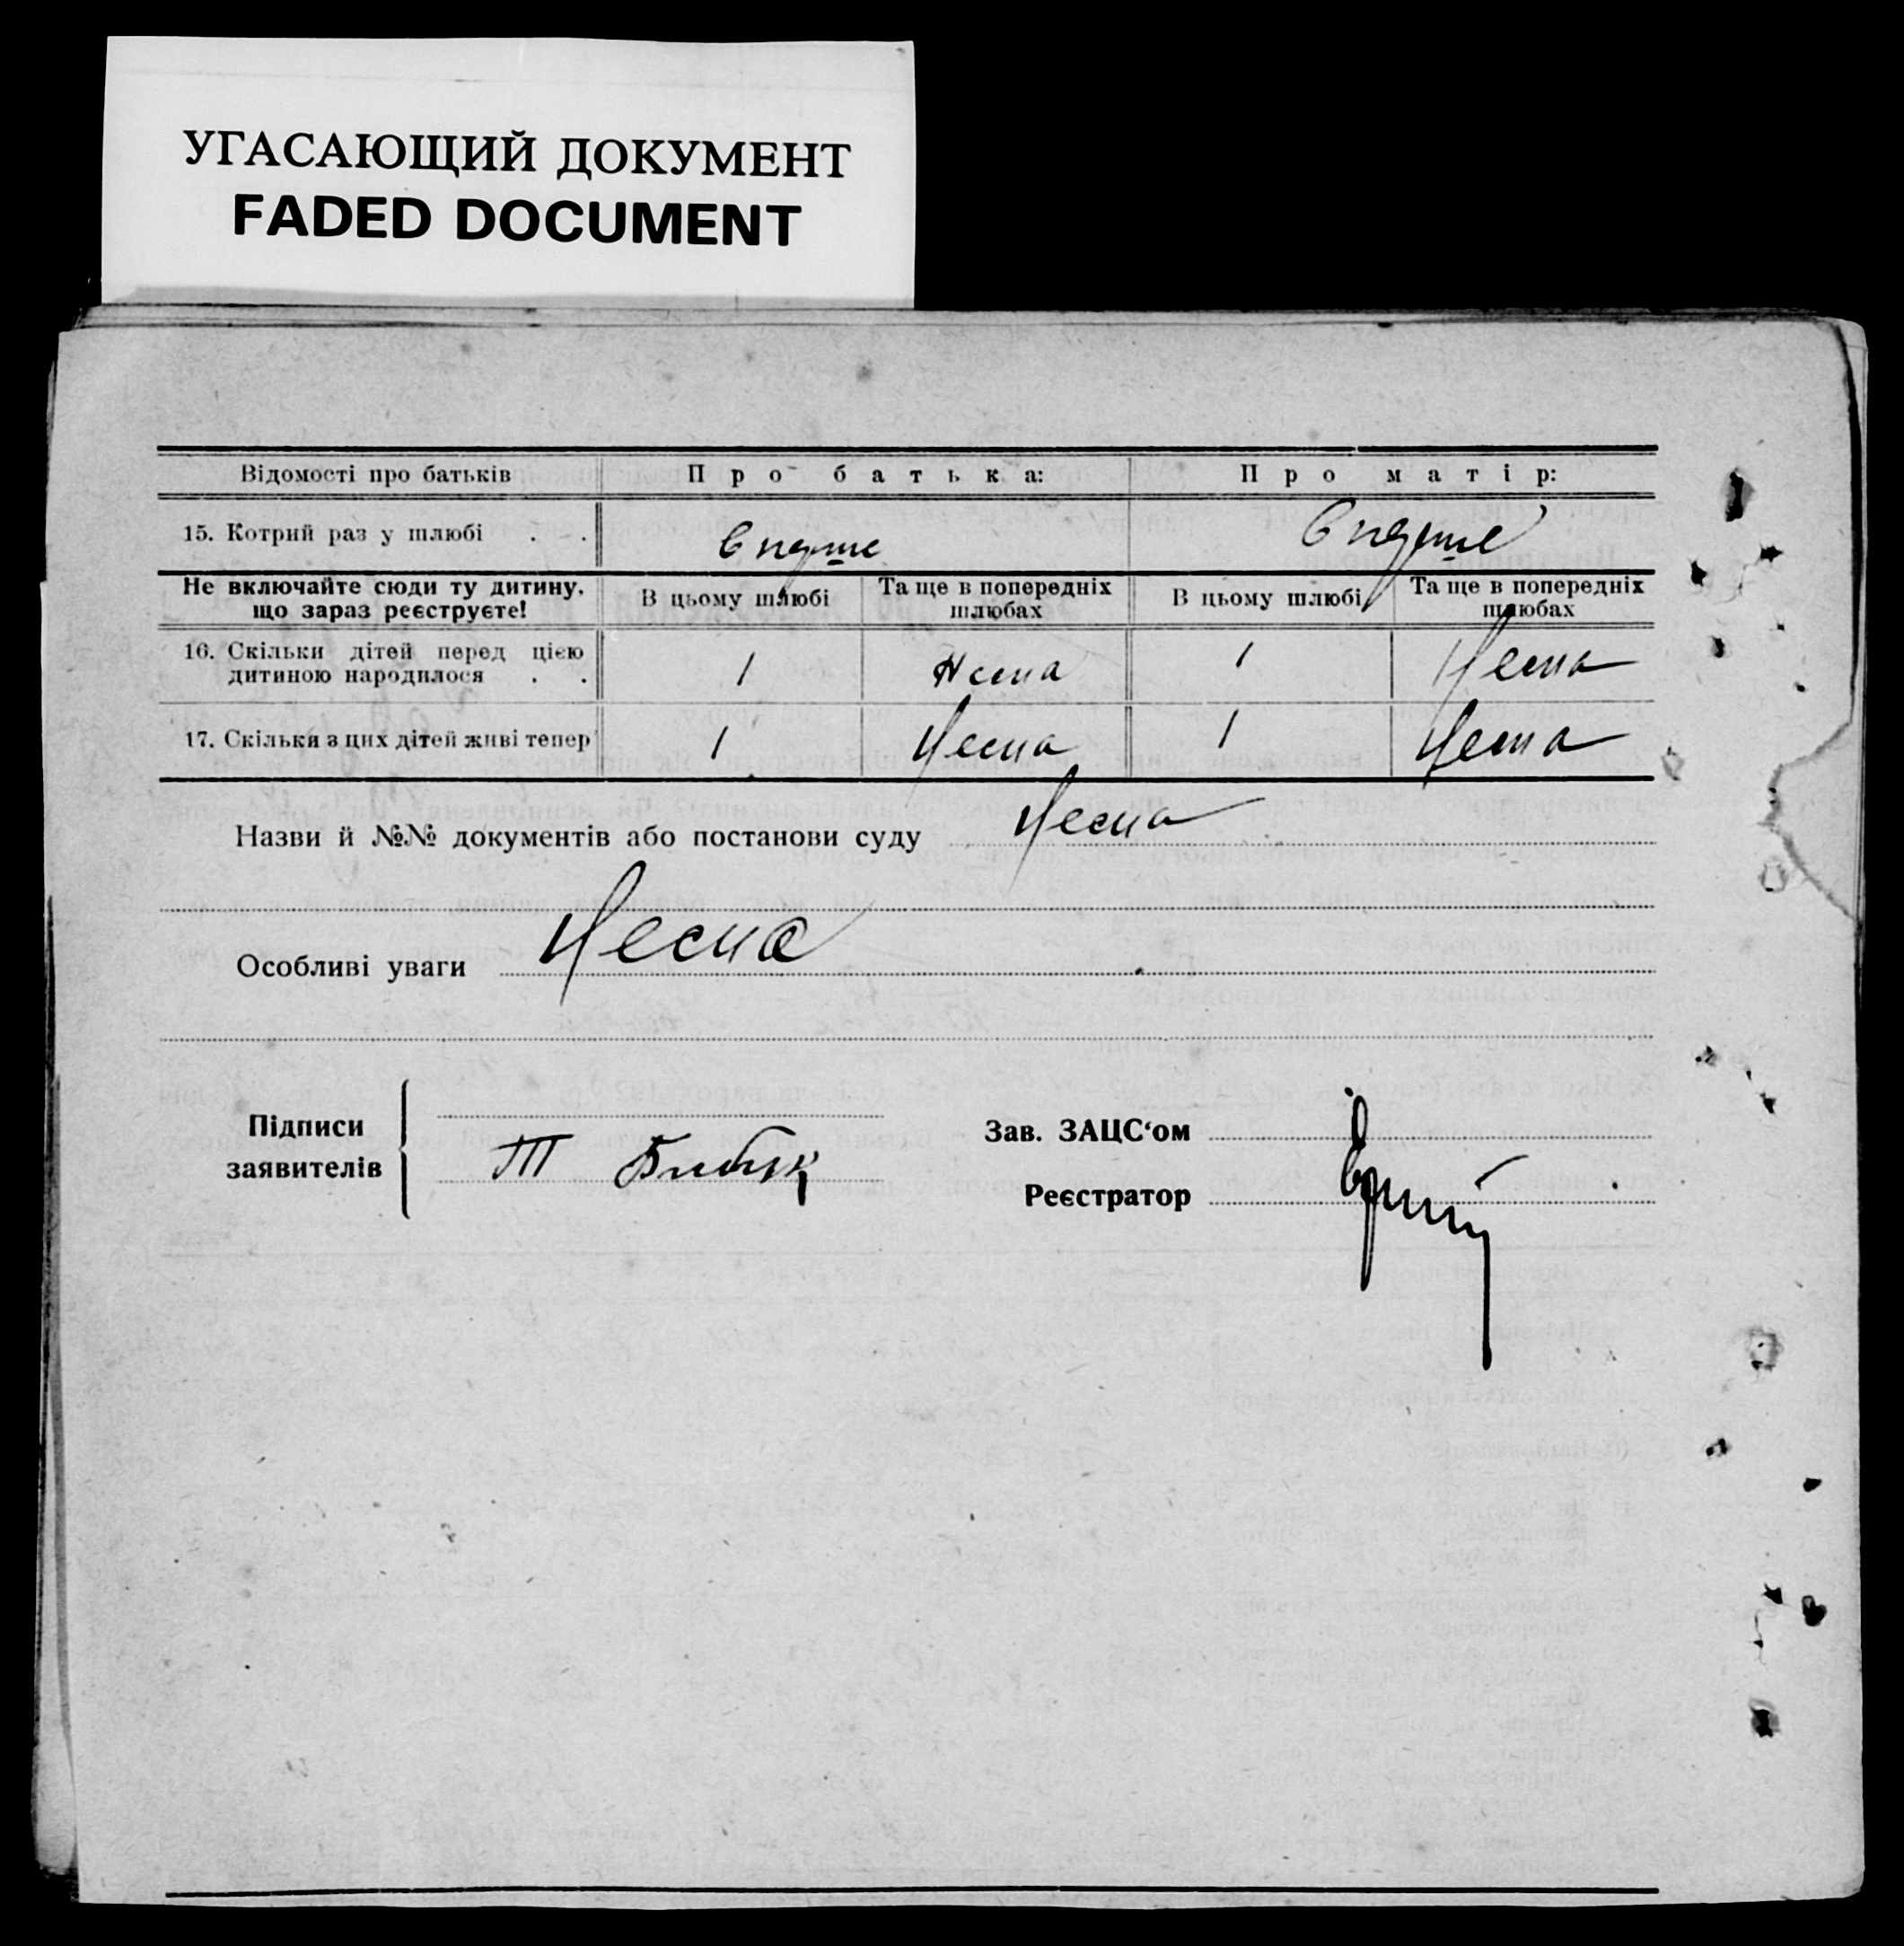 УГАСАЮЩИЙ ДОКУМЕНТ
FADED DOCUMENT
Відомості про батьків Про батька: Про матір:
15. Котрий раз у шлюбі . . в перше в перше
Не включайте сюди ту дитину, що зараз реєструєте! В цьому шлюбі Та ще в попередніх шлюбах В цьому шлюбі Та ще в попередніх шлюбах
16. Скільки дітей перед цією дитиною народилося . . 1 Нема 1 Нема
17. Скільки з цих дітей живі тепер 1 Нема 1 Нема
Назви й №№ документів або постанови суду Нема
Особливі уваги Нема
Підписи заявителів
Т
Зав. ЗАЦС‘ом
Реєстратор